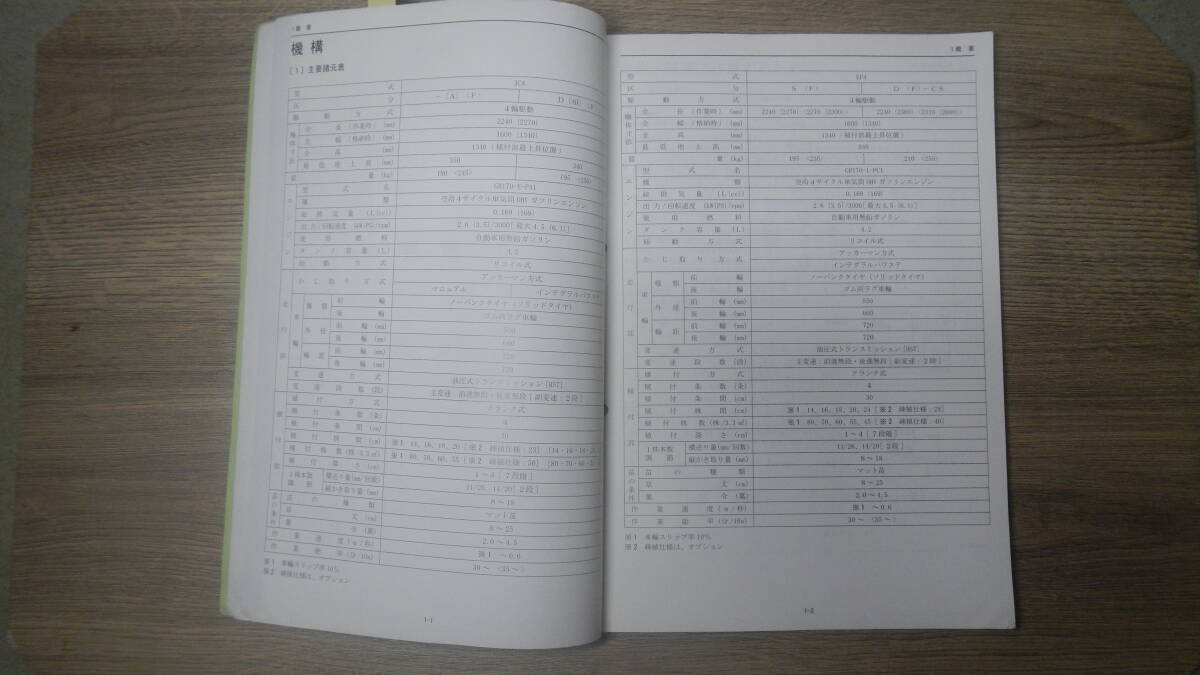 機 構
〔1〕主要諸元表
型 式 JC4
区 分 －〔A〕〈F〉 D〔H〕〈F
駆 動 方 式 4輪駆動
機体寸法 全 長〔作業時〕(mm) 2240〔2270〕
全 幅〔格納時〕(mm) 1600〔1340〕
全 高 (mm) 1340〔植付部最上昇位置〕
最 低 地 上 高 (mm) 350 340
質 量 (kg) 190〈245〉 195〈250〉
エンジン 型 式 名 GB170-E-P41
種 類 空冷4サイクル単気筒OHVガソリンエンジン
総 排 気 量 (L{cc}) 0.169{169}
出力/回転速度 (kW{PS}/rpm) 2.6{3.5}/3000[最大4.5{6.1}]
使 用 燃 料 自動車用無鉛ガソリン
タ ン ク 容 量 (L) 4.2
始 動 方 式 リコイル式
走行部 か じ 取 り 方 式 アッカーマン方式
マニュアル インテグラルパワステ
車輪 種類 前 輪 ノーパンクタイヤ（ソリッドタイヤ）
後 輪 ゴム両ラグ車輪
外径 前 輪 (mm) 550
後 輪 (mm) 660
輪距 前 輪 (mm) 720
後 輪 (mm) 720
変 速 方 式 油圧式トランスミッション[HST]
変 速 段 数 (段) 主変速：前進無段・後進無段[副変速：2段]
植付部 植 付 方 式 クランク式
植 付 条 数 (条) 4
植 付 条 間 (cm) 30
植 付 株 間 (cm) ※1 14、16、18、20[※2 疎植仕様：23]
植 付 株 数 (株/3.3㎡) ※1 80、70、60、55[※2 疎植仕様：50]
植 付 深 さ (cm) 1～4[7段階]
1株本数調節 横送り量(mm/回数) 11/26、14/20[2段]
縦かき取り量(mm) 8～18
苗の条件 苗 の 種 類 マット苗
草 丈 (cm) 8～25
葉 令 (葉) 2.0～4.5
作 業 速 度 (m/秒) ※1 ～0.6
作 業 能 率 (分/10a) 30～〈35～〉
※1 車輪スリップ率10%
※2 疎植仕様は、オプション
1-1
型 式 EP4
区 分 S〈F〉 D〈F〉-CS
駆 動 方 式 4輪駆動
機体寸法 全 長〔作業時〕(mm)
全 幅〔格納時〕(mm) 1600〔1340〕
全 高 (mm) 1340〔植付部最上昇位置〕
最 低 地 上 高 (mm) 340
質 量 (kg) 195〈250〉 210〈250〉
エンジン 型 式 名 GB170-E-PC1
種 類 空冷4サイクル単気筒OHVガソリンエンジン
総 排 気 量 (L{cc}) 0.169{169}
出力/回転速度 (kW{PS}/rpm) 2.6{3.5}/3000[最大4.5{6.1}]
使 用 燃 料 自動車用無鉛ガソリン
タ ン ク 容 量 (L) 4.2
始 動 方 式 リコイル式
走行部 か じ 取 り 方 式 アッカーマン方式
インテグラルパワステ
車輪 種類 前 輪 ノーパンクタイヤ（ソリッドタイヤ）
後 輪 ゴム両ラグ車輪
外径 前 輪 (mm) 550
後 輪 (mm) 660
輪距 前 輪 (mm) 720
後 輪 (mm) 720
変 速 方 式 油圧式トランスミッション[HST]
変 速 段 数 (段) 主変速：前進無段・後進無段[副変速：2段]
植付部 植 付 方 式 クランク式
植 付 条 数 (条) 4
植 付 条 間 (cm) 30
植 付 株 間 (cm) ※1 14、16、18、20、24[※2 疎植仕様：28]
植 付 株 数 (株/3.3㎡) ※1 80、70、60、55、45[※2 疎植仕様：40]
植 付 深 さ (cm) 1～4[7段階]
1株本数調節 横送り量(mm/回数) 11/26、14/20[2段]
縦かき取り量(mm) 8～18
苗の条件 苗 の 種 類 マット苗
草 丈 (cm) 8～25
葉 令 (葉) 2.0～4.5
作 業 速 度 (m/秒) ※1 ～0.6
作 業 能 率 (分/10a) 30～〈35～〉
※1 車輪スリップ率10%
※2 疎植仕様は、オプション
1-2